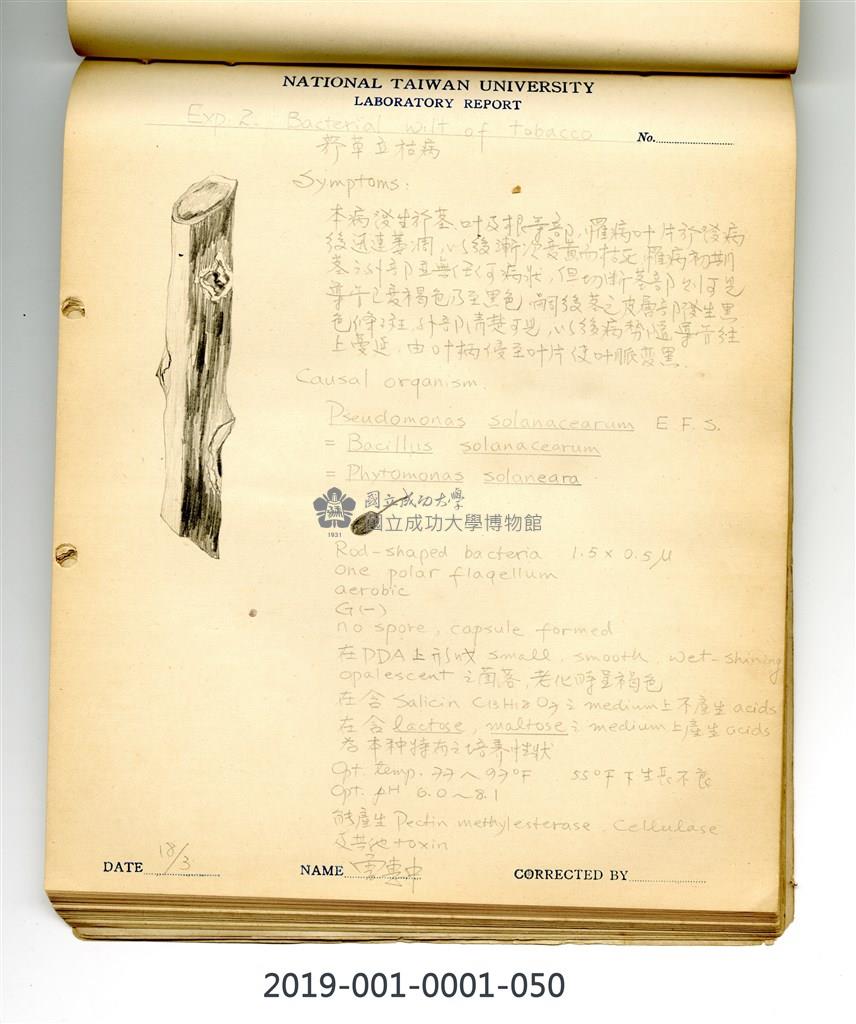 NATIONAL TAIWAN UNIVERSITY
LABORATORY REPORT
Exp. 2. Bacterial wilt of tobacco
No.
菸草立枯病
Symptoms:
本病發生於莖、叶及根等部,罹病叶片於發病
後迅速萎凋,以後漸次変黃而枯死,罹病初期
莖之外部並無任何病狀,但切断莖部則可見
導管已変褐色乃至黑色,嗣後莖之皮層部發生黑
色條斑,外部清楚可見,以後病勢隨導管往
上蔓延,由叶柄侵至叶片使叶脈変黑.
Causal organism.
Pseudomonas solanacearum E. F. S.
= Bacillus solanacearum
= Phytomonas solaneara
國立成功大學
國立成功大學博物館
1931
Rod-shaped bacteria 1.5 × 0.5 μ
one polar flagellum
aerobic
G(-)
no spore, capsule formed
在PDA上形成 small, smooth, wet-shining
opalescent 之菌落,老化時呈褐色
在含 Salicin C13H18O7 之 medium 上不產生 acids
在含 lactose, maltose 之 medium 上產生 acids
為本种特有之培养性狀
Opt. temp. 77~97°F 55°F下生長不良
Opt. pH 6.0~8.1
能產生 Pectin methylesterase, Cellulase
及其他 toxin
DATE 18/3
NAME
CORRECTED BY
2019-001-0001-050